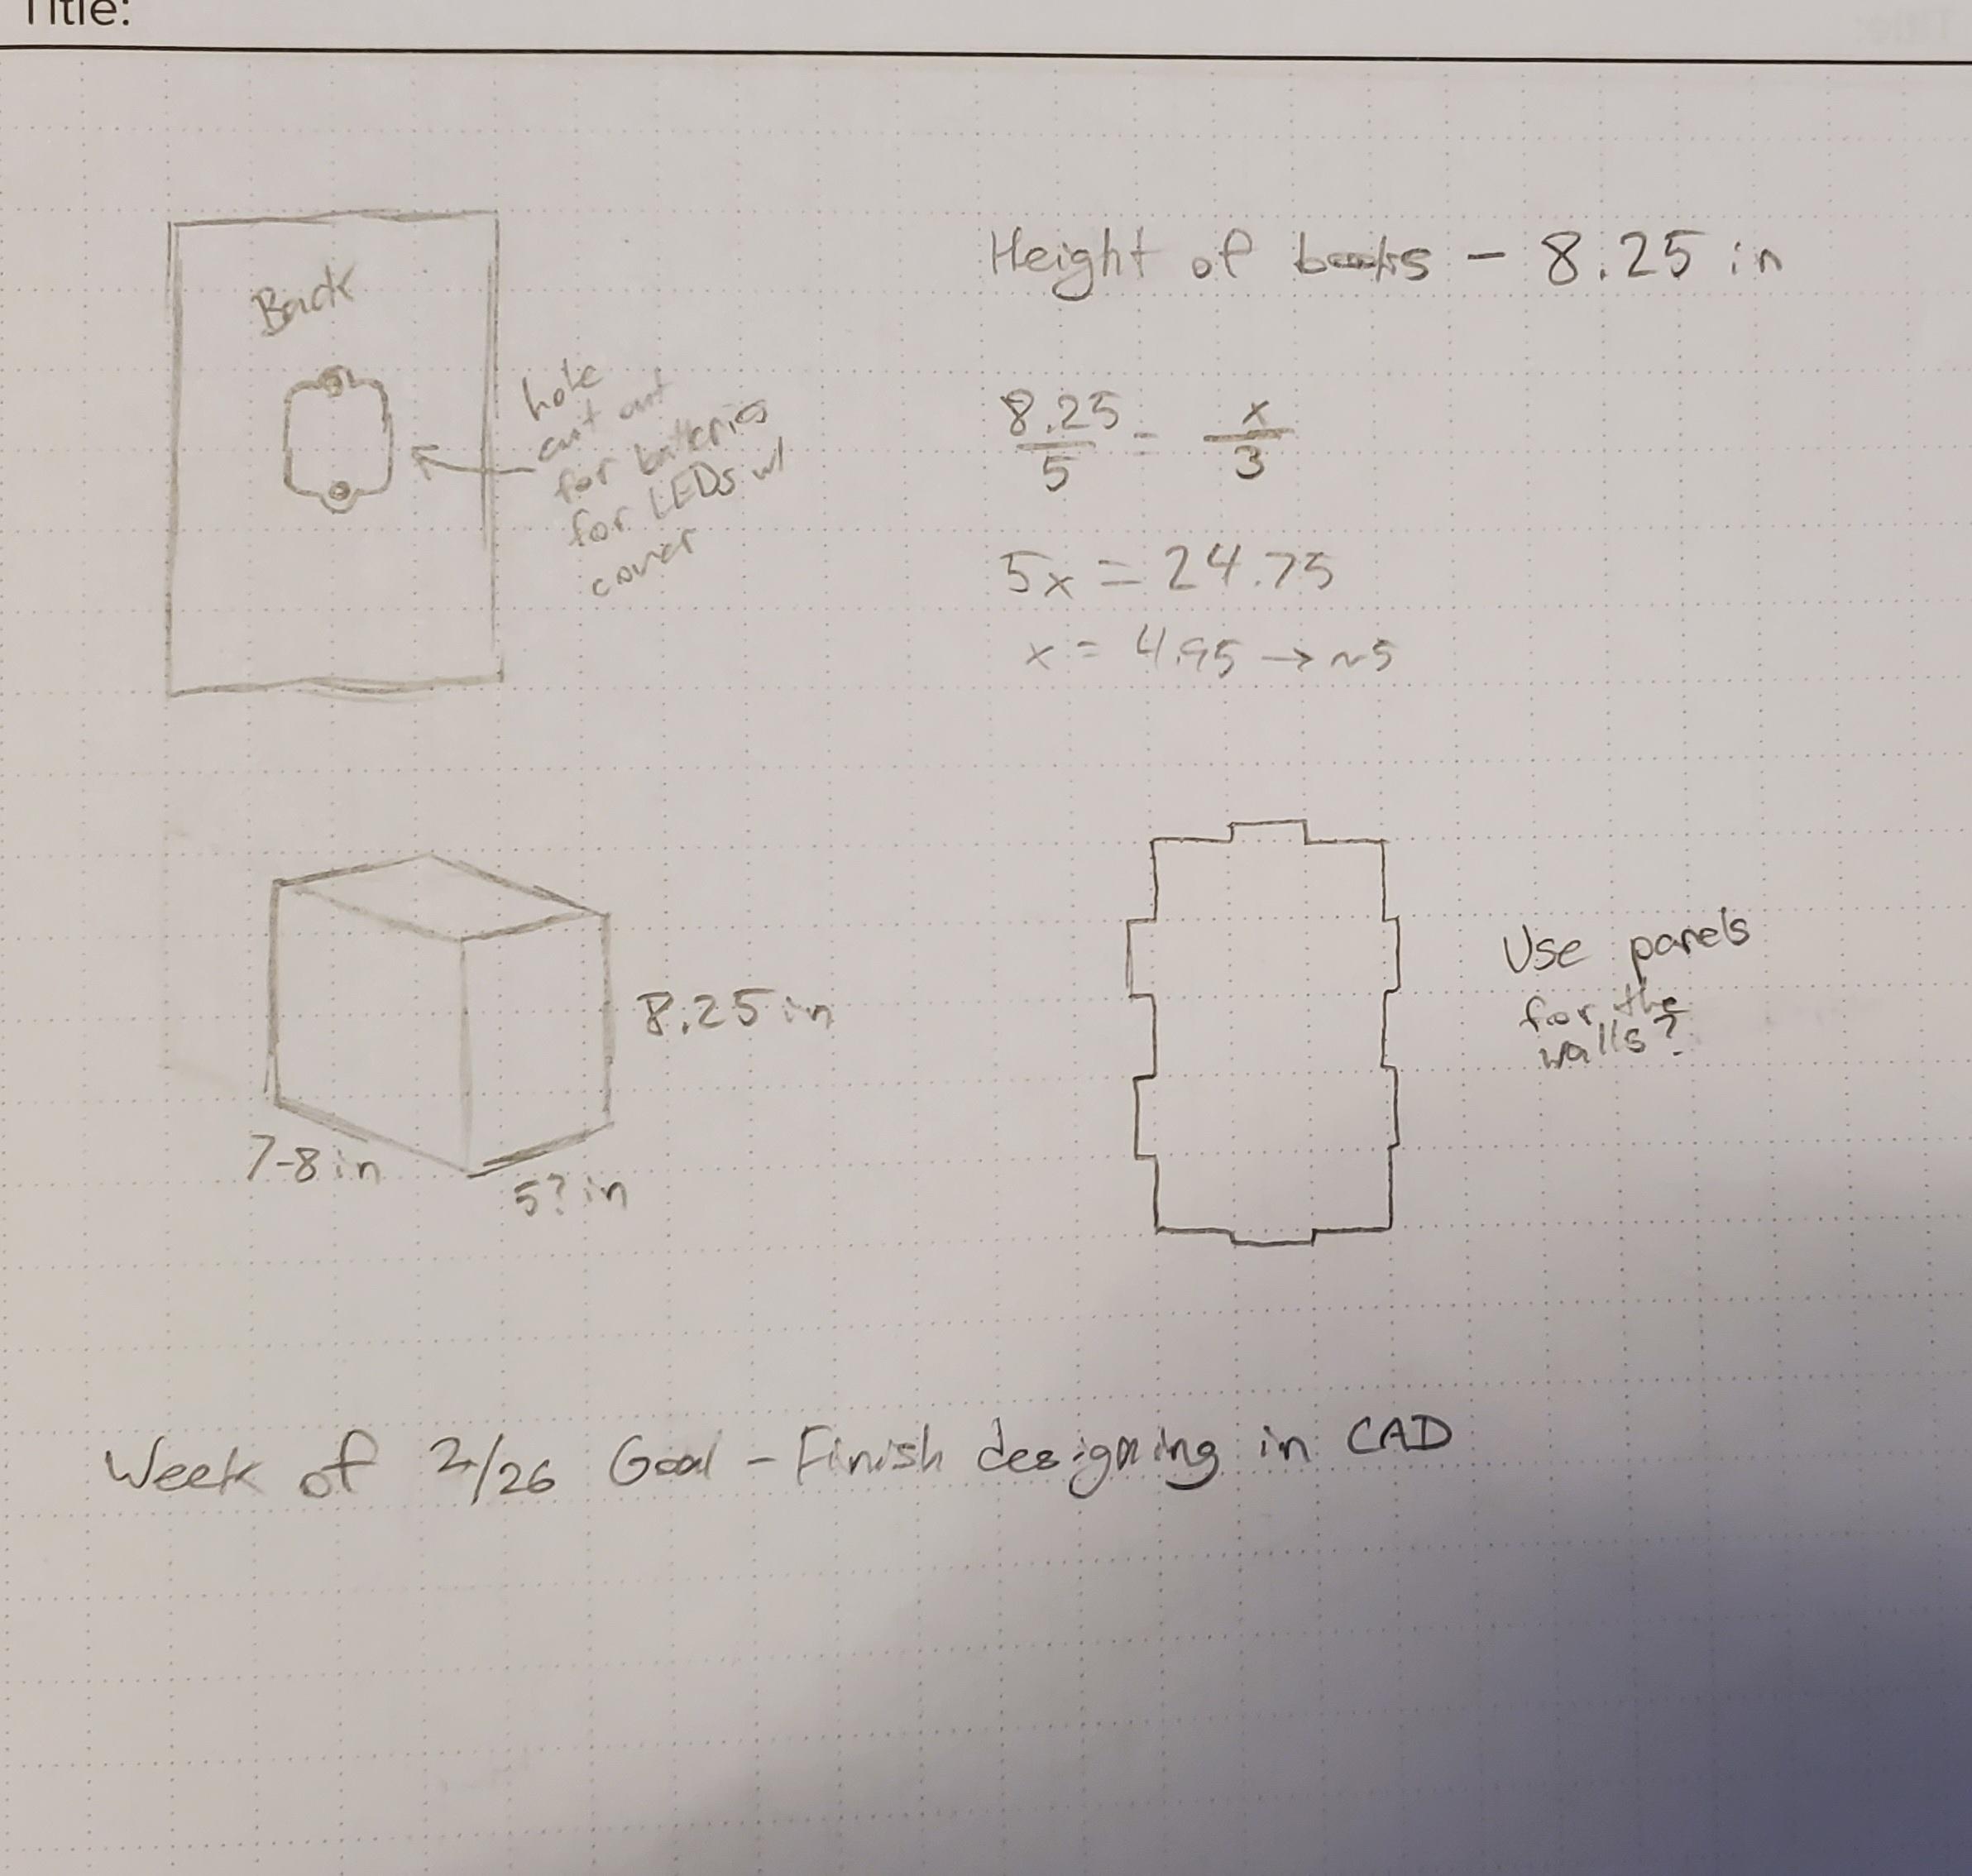 Title:
Back
hole
cut out
for batteries
for LEDs w/
cover
Height of books - 8.25 in
8.25/5 = x/3
5x = 24.75
x = 4.95 → ~5
8.25 in
7-8 in
5? in
Use panels
for the
walls?
Week of 2/26 Goal - Finish designing in CAD